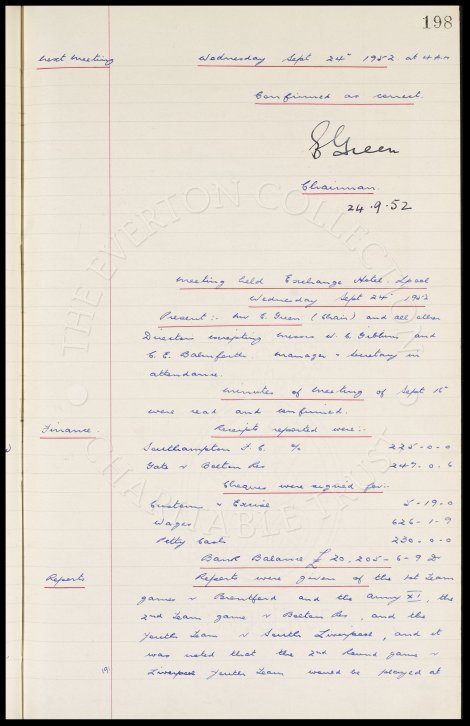 198
Next Meeting Wednesday Sept 24th 1952 at 4 P.M
Confirmed as correct.
E Green
Chairman.
24.9.52
Meeting held Exchange Hotel. Lpool
Wednesday Sept 24th 1952
Present :- Mr E. Green (Chair) and all other
Directors excepting Messrs W. C. Gibbins and
C. E. Balmforth. Manager & Secretary in
attendance.
Minutes of Meeting of Sept 15th
were read and confirmed.
Finance. Receipts reported were :-
Southampton F.C. % 225-0-0
Gate v Bolton Res 247-0-6
Cheques were signed for :-
Customs & Excise 5-19-0
Wages 626-1-9
Petty Cash 230-0-0
Bank Balance £20,205-6-9 Dr
Reports Reports were given of the 1st Team
games v Brentford and the Army XI, the
2nd Team game v Bolton Res, and the
Youth Team v South Liverpool, and it
was noted that the 2nd Round game v
Liverpool Youth Team would be played at
THE EVERTON COLLECTION CHARITABLE TRUST